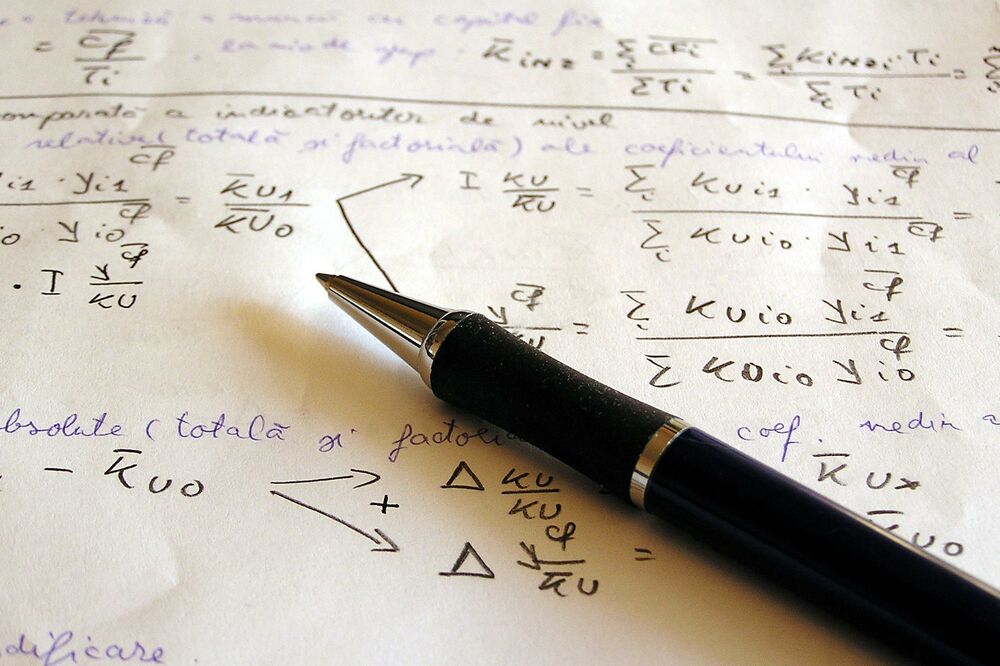 tehnică a muncii cu capital fix
= C̄F̄ / T̄i . K̄inz = Σi CFi / ΣTi = Σi Kinzi · Ti / Σi Ti = Σ
comparată a indicatorilor de nivel
relative (totală și factorială) ale coeficientului mediu al
i1 · yi1^CF / io yio^CF = K̄U1 / K̄U0 I KU / K̄U = Σi KUi1 · yi1^CF / Σi KUi0 · yi1^CF =
· I y^CF / KU y^CF / KU = Σi KUi0 yi1^CF / Σ KUi0 yi0^CF =
absolute (totală și coef. mediu a
- K̄U0 Δ KU / KU K̄U*
+ K̄U0
Δ y^CF / K̄U =
dificare